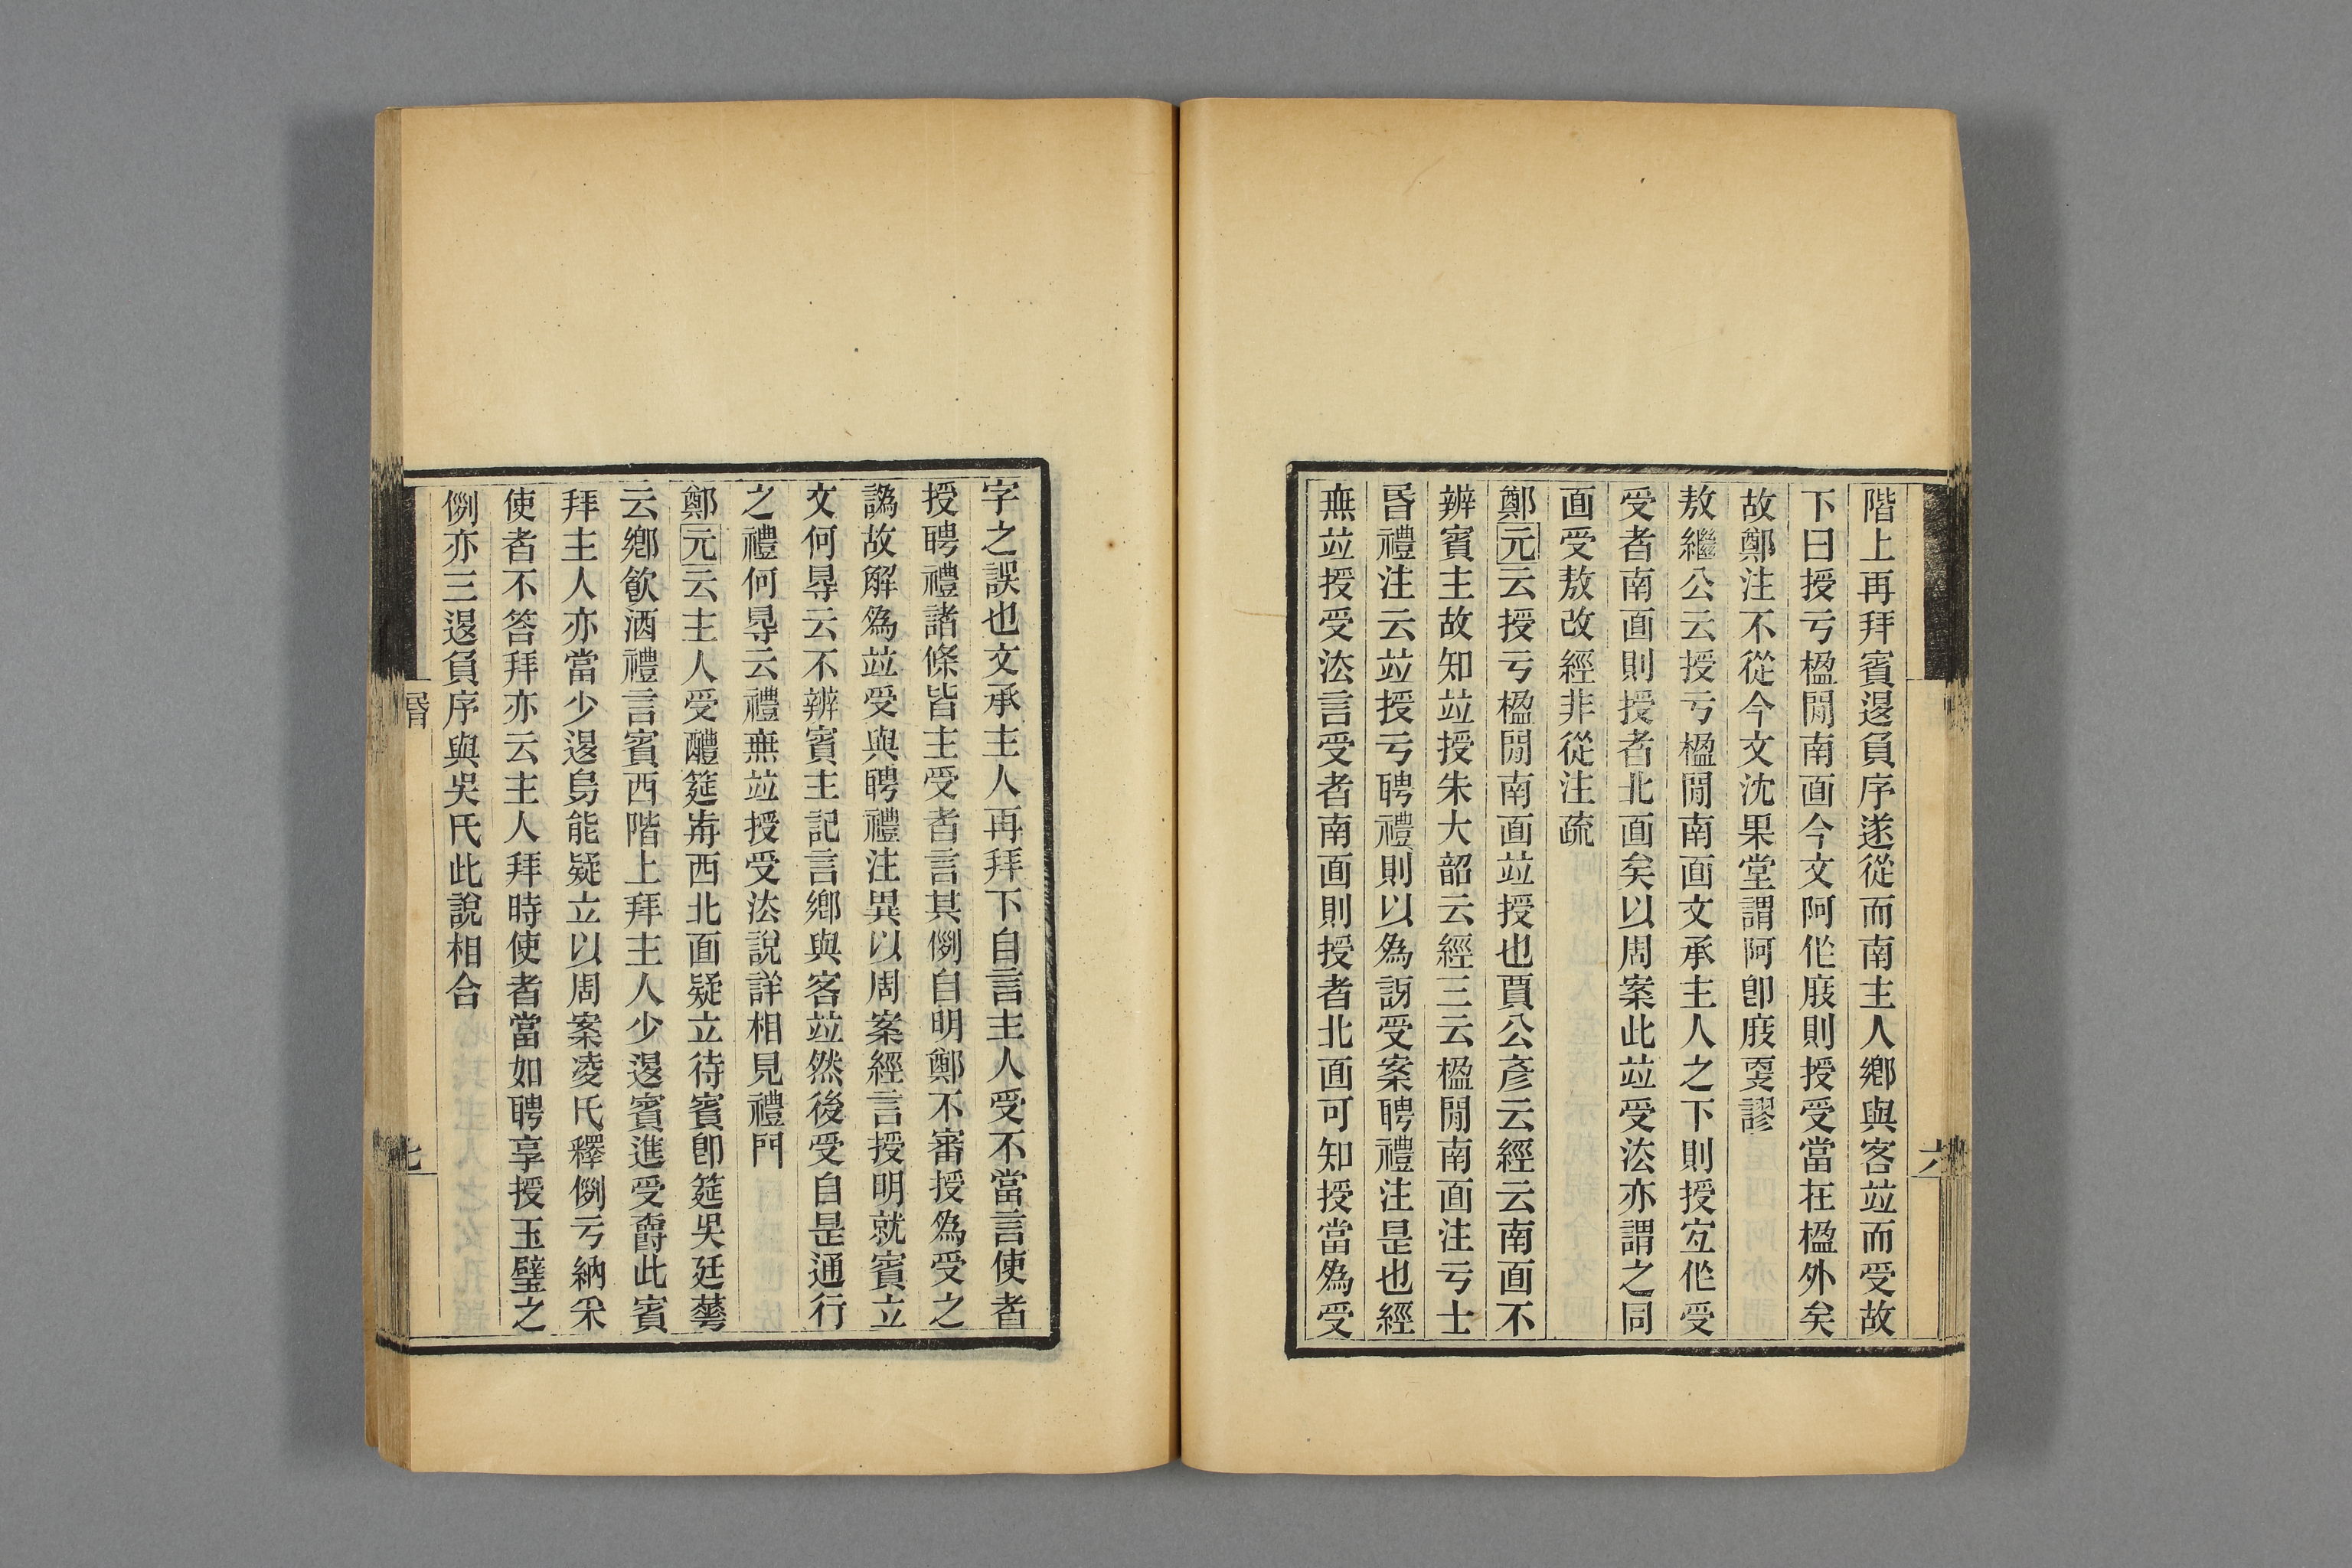 階上再拜賓𨓤負序遂從而南主人鄉與客竝而受故
下曰授亏楹閒南面今文阿㐰庪則授受當在楹外矣
故鄭注不從今文沈果堂謂阿卽庪耎謬
敖繼公云授亏楹閒南面文承主人之下則授宐㐰受
受者南面則授者北面矣以周案此竝受㳒亦謂之同
面受敖改經非從注疏
鄭元云授亏楹閒南面竝授也賈公彥云經云南面不
辨賓主故知竝授朱大韶云經三云楹閒南面注亏士
昬禮注云竝授亏聘禮則以爲訝受案聘禮注是也經
無竝授受㳒言受者南面則授者北面可知授當爲受
六
字之誤也文承主人再拜下自言主人受不當言使者
授聘禮諸條皆主受者言其㓡自明鄭不審授爲受之
譌故解爲竝受與聘禮注異以周案經言授明就賓立
文何㝵云不辨賓主記言鄉與客竝然後受自是通行
之禮何㝵云禮無竝授受㳒說詳相見禮門
鄭元云主人受醴筵歬西北面疑立待賓卽筵吳廷華
云鄉飮酒禮言賓西階上拜主人少𨓤賓進受爵此賓
拜主人亦當少𨓤烏能疑立以周案凌氏釋例亏納采
使者不答拜亦云主人拜時使者當如聘享授玉璧之
例亦三𨓤負序與吳氏此說相合
昬
七